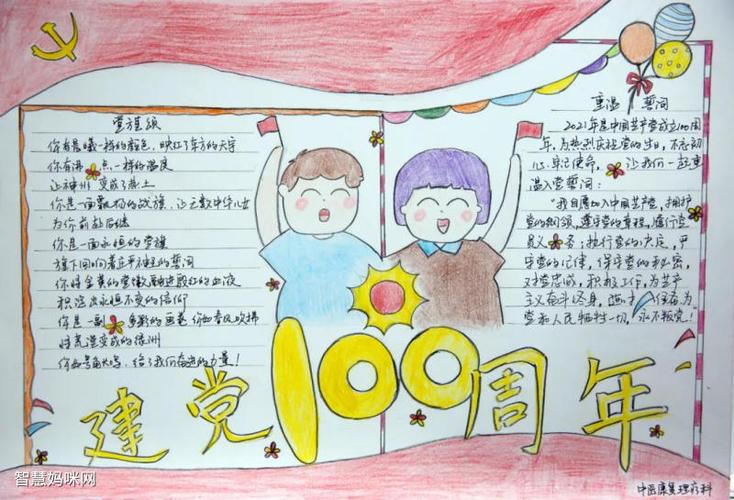 党旗颂
你有晨曦一样的颜色，映红了东方的天宇
你有沸点一样的温度
让神州变成了热土
你是一面飘扬的战旗，让无数中华儿女
为你前赴后继
你是一面永恒的党旗
旗下回响着庄严神圣的誓词
积淀出永恒不变的信仰
你是一副多彩的画卷
建党100周年
重温 誓词
2021年是中国共产党成立100周
年，为热烈庆祝党的生日，不忘初
心，牢记使命，让我们一起重
温入党誓词：
"我自愿加入中国共产党，拥护
党的纲领，遵守党的章程，履行党
员义务；执行党的决定，严
守党的纪律，保守党的秘密，
对党忠诚，积极工作，为共产
主义奋斗终身，
党和人民牺牲一切，永不叛党！
中医康复理疗科
智慧妈咪网